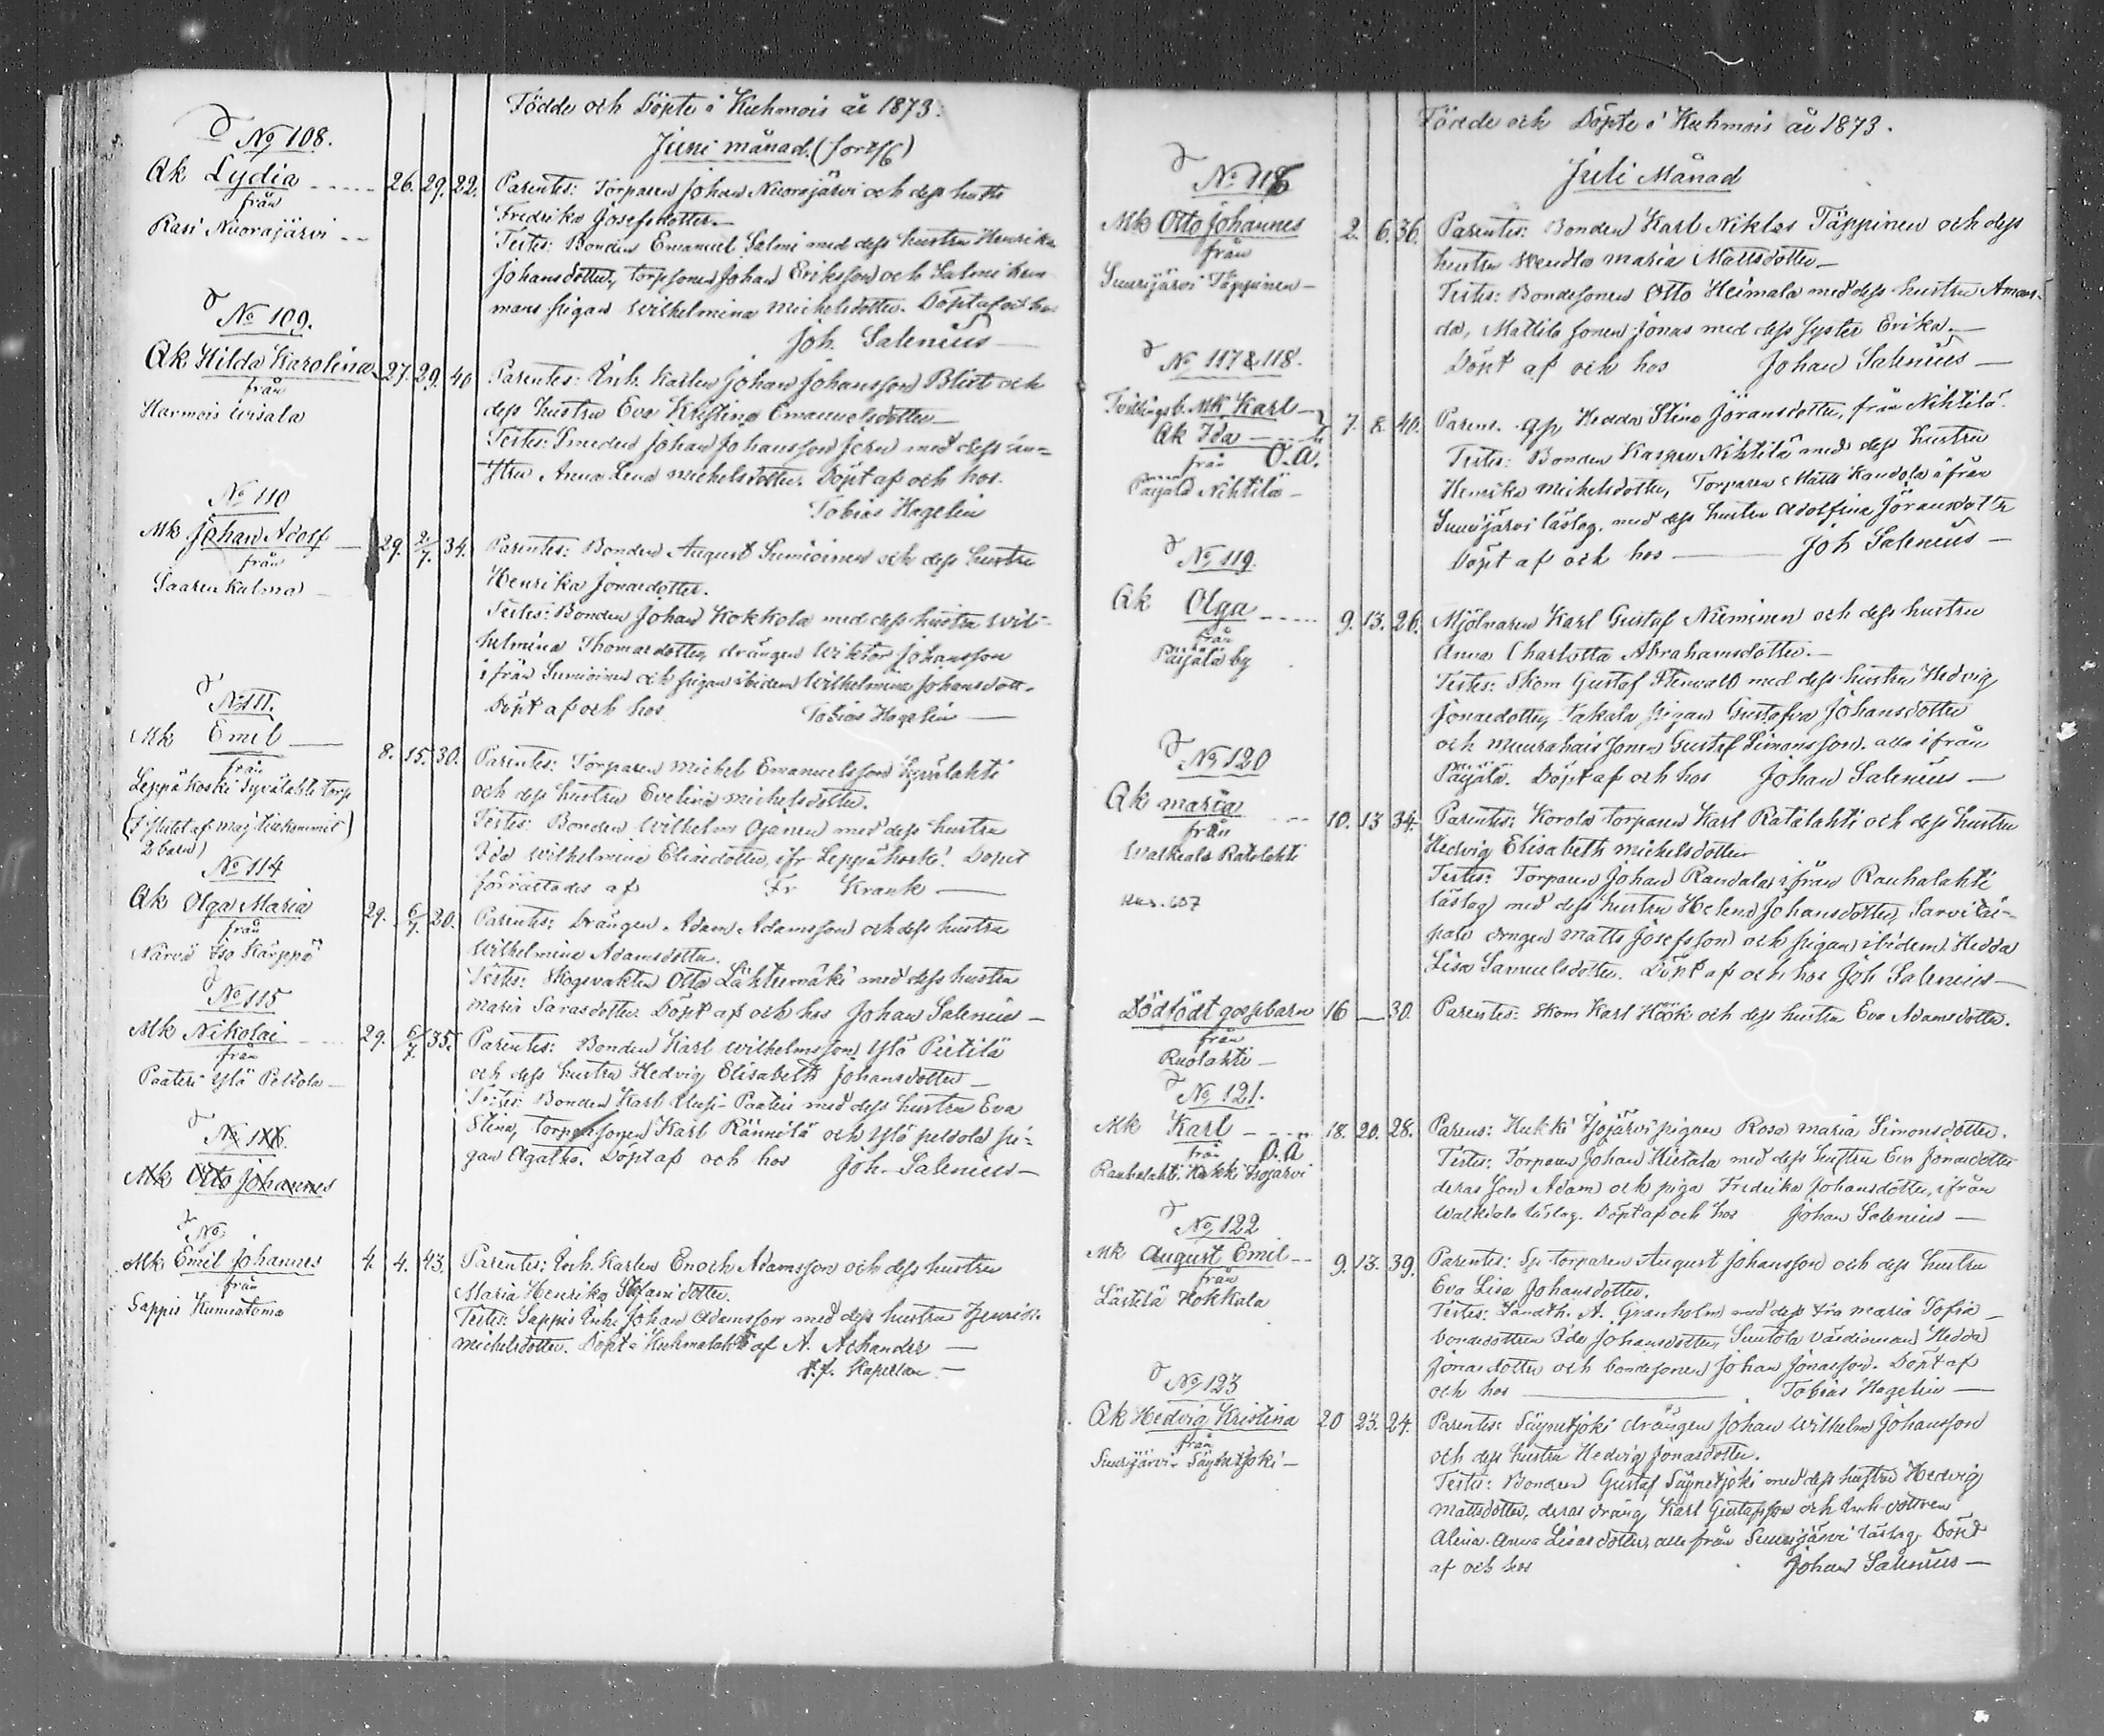 Födde och Döpte i Kuhmois år 1873.
Juni månad. (forts)
No 108.
Qk Lydia 26. 29. 22.
från
Rasi Nuorajärvi
Parentes: Torparen Johan Nuorajärvi och dess hustru
Fredrika Josefsdotter.
Testes: Bonden Emanuel Salmi med dess hustru Henrika
Johansdotter, torpsonen Johan Eriksson och Salmi hem
mans pigan Wilhelmina Michelsdotter. Döpt af och hos
Joh. Salenius
No 109.
Qk Hilda Karolina 27. 29. 40
från
Harmois Wisala
Parentes: Inh. Karlen Johan Johansson Blixt och
dess hustru Eva Kristina Emanuelsdotter
Testes: Smeden Johan Johansson Jern med dess hu=
stru Anna Lena Michelsdotter. Döpt af och hos.
Tobias Hagelin
No 110
Mk Johan Adolf 29. 2/7. 34.
från
Saaren Kulma
Parentes: Bonden August Sumioinen och dess hustru
Henrika Jonasdotter.
Testes: Bonden Johan Kokkola med dess hustru Wil-
helmina Thomasdotter, drängen Wiktor Johansson
ifrån Sumioinen och pigan ibidem Wilhelmina Johansdott.
Döpt af och hos Tobias Hagelin
No 111.
Mk Emil 8. 15. 30.
från
Leppäkoski Syvälahti torp
2 barn)
Parentes: Torparen Michel Emanuelsson Syvälahti
och dess hustru Evelina Michelsdotter.
Testes: Bonden Wilhelm Ojanen med dess hustru
Ida Wilhelmina Eliasdotter, ifr Leppäkoski. Dopet
förrättades af Fr Krank
No 114
Qk Olga Maria 29. 6/7. 20.
från
Närvä Iso Kärppä
Parentes: Drängen Adam Adamsson och dess hustru
Wilhelmina Adamsdotter.
Testes: Skogsvakten Otto Lähteenmäki med dess hustru
Maria Sarasdotter. Döpt af och hos Johan Salenius
No 115
Mk Nikolai 29. 6/7. 35.
från
Paateri Ylä Peltola
Parentes: Bonden Karl Wilhelmsson Ylä Pietilä
och dess hustru Hedvig Elisabeth Johansdotter
Testes: Bonden Karl Uusi-Paateri med dess hustru Eva
Stina, torparsonen Karl Rännilä och Ylä peltola pi=
gan Agatha. Döpt af och hos Joh. Salenius
No 116.
Mk Otto Johannes
No
Mk Emil Johannes 4. 4. 43.
från
Sappis Hunnatoma
Parentes: Inh. Karlen Enoch Adamsson och dess hustru
Maria Henrika Stefansdotter.
Testes: Sappis Inh. Johan Adamsson med dess hustru Henrika
Michelsdotter. Döpt i Kuhmalahti af A. Achander
v.p. Kapellan
Födde och Döpte i Kuhmois år 1873.
Juli Månad
No 116
Mk Otto Johannes 2. 6. 36.
från
Sunijärvi Täppinen
Parentes: Bonden Karl Niklas Täppinen och dess
hustru Wendla Maria Mattsdotter
Testes: Bondesonen Otto Heimala med dess hustru Aman-
da, Mattila sonen Jonas med dess syster Erika.
Döpt af och hos Johan Salenius
No 117 & 118.
Tvillingsb. Mk Karl
Qk Ida 7. 8. 40.
från O.Ä.
Päijälä Nihtilä
Parens. Qp Hedda Stina Jöransdotter, från Nihtilä.
Testes: Bonden Kasper Nihtilä med dess hustru
Henrika Michelsdotter, Torparen Matts Kandola ifrån
Sunijärvi läslag, med dess hustru Adolfina Jöransdotter
Döpt af och hos Joh Salenius
No 119.
Qk Olga 9. 13. 26.
från
Päijälä by
Mjölnaren Karl Gustaf Nieminen och dess hustru
Anna Charlotta Abrahamsdotter.
Testes: Skom Gustaf Stenvall med dess hustru Hedvig
Jonasdotter, Takala pigan Gustafva Johansdotter
och Muurahais sonen Gustaf Simonsson. alla ifrån
Päijälä. Döpt af och hos Johan Salenius
No 120
Qk Maria 10. 13 34.
från
Walkiala Ratalahti
Parentes: Korola torparen Karl Ratalahti och dess hustru
Hedvig Elisabeth Michelsdotter
Testes: Torparen Johan Randala ifrån Rauhalahti
läslag med dess hustru Helena Johansdotter, Sarvitai-
pale drngen Matts Josefsson och pigan ibidem Hedda
Lisa Samuelsdotter. Döpt af och hos Joh Salenius
Dödfödt gossbarn 16 — 30.
från
Ruolahti
Parentes: Skom Karl Höök och dess hustru Eva Adamsdotter.
No 121.
Mk Karl 18. 20. 28.
från O.Ä
Rauhalahti. Kukki Isojärvi
Parens: Kukki Isojärvi pigan Rosa Maria Simonsdotter.
Testes: Torparen Johan Hietala med dess hustru Eva Jonasdotter
deras son Adam och piga Fredrika Johansdotter, ifrån
Walkiala läslag. Döpt af och hos Johan Salenius
No 122
Mk August Emil 9. 13. 39.
från
Lästilä Kokkala
Parentes: Sp torparen August Johansson och dess hustru
Eva Lisa Johansdotter.
Testes: Landth. A. Granholm med dess fru Maria Sofia
bondedottren Ida Johansdotter, Suutola värdinnan Hedda
Jonasdotter och bondesonen Johan Jonasson. Döpt af
och hos Tobias Hagelin
No 123
Qk Hedvig Kristina 20 23. 24.
från
Sunijärvi Säynätjoki
Parentes: Säynetjoki drängen Johan Wilhelm Johansson
och dess hustru Hedvig Jonasdotter.
Testes: Bonden Gustaf Säynetjoki med dess hustru Hedvig
Mattsdotter, deras dräng Karl Gustafsson och Inh. dottren
Alina Anna Lisasdotter, alla från Sunijärvi läslag. Döpt
af och hos Johan Salenius